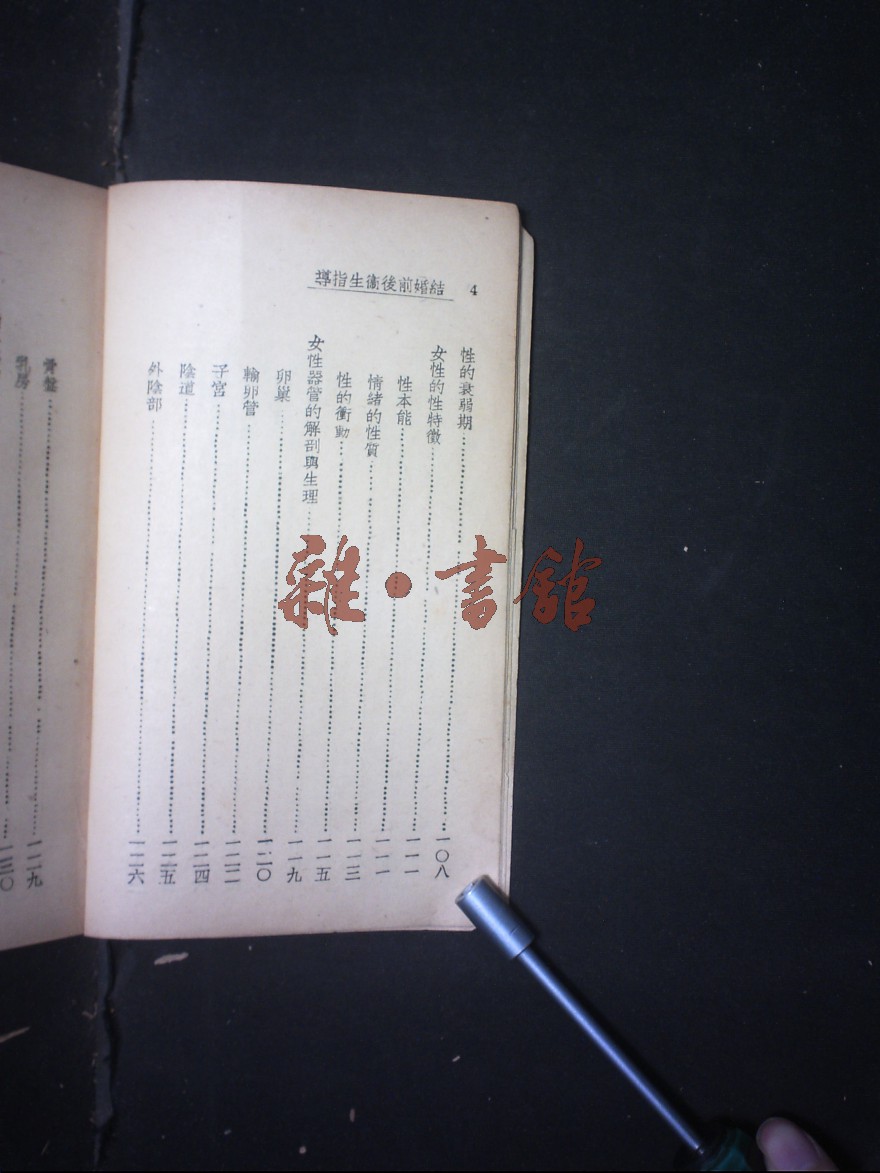 4 結婚前後衞生指導
性的衰弱期……一〇八
女性的性特徵……一一一
性本能……一一一
情緒的性質……一一三
性的衝動……一一五
女性器管的解剖與生理……一一九
卵巢……一二〇
輸卵管……一二二
子宮……一二四
陰道……一二五
外陰部……一二六
骨盤……一二九
乳房……一三〇
雜·書館